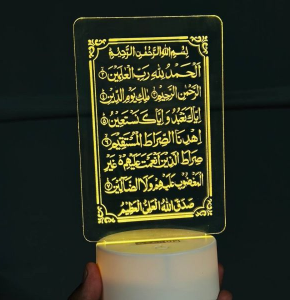 بِسْمِ اللهِ الرَّحْمٰنِ الرَّحِيْمِ
اَلْحَمْدُ لِلّٰهِ رَبِّ الْعٰلَمِيْنَ ۝
الرَّحْمٰنِ الرَّحِيْمِ ۝ مٰلِكِ يَوْمِ الدِّيْنِ ۝
اِيَّاكَ نَعْبُدُ وَاِيَّاكَ نَسْتَعِيْنُ ۝
اِهْدِنَا الصِّرَاطَ الْمُسْتَقِيْمَ ۝
صِرَاطَ الَّذِيْنَ اَنْعَمْتَ عَلَيْهِمْ ۝ غَيْرِ
الْمَغْضُوْبِ عَلَيْهِمْ وَلَا الضَّآلِّيْنَ ۝
صَدَقَ اللهُ الْعَلِيُّ الْعَظِيْمُ